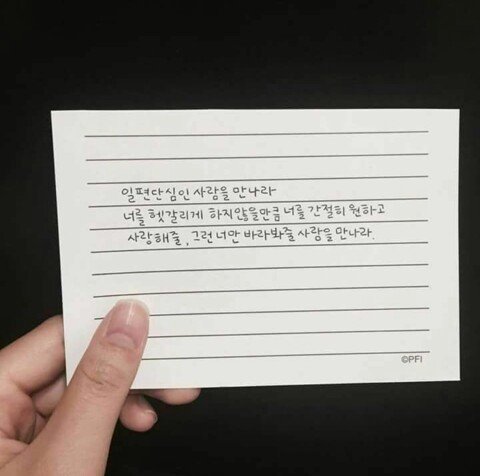 일편단심인 사람을 만나라
너를 헷갈리게 하지않을만큼 너를 간절히 원하고
사랑해줄, 그런 너만 바라봐줄 사람을 만나라.
©PFI